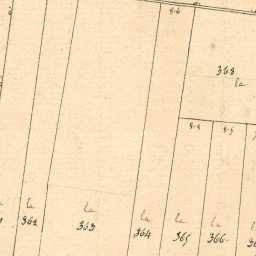 8.6
368
la
8.8
8.5
la
la
la
la
la
362
363
364
365
366